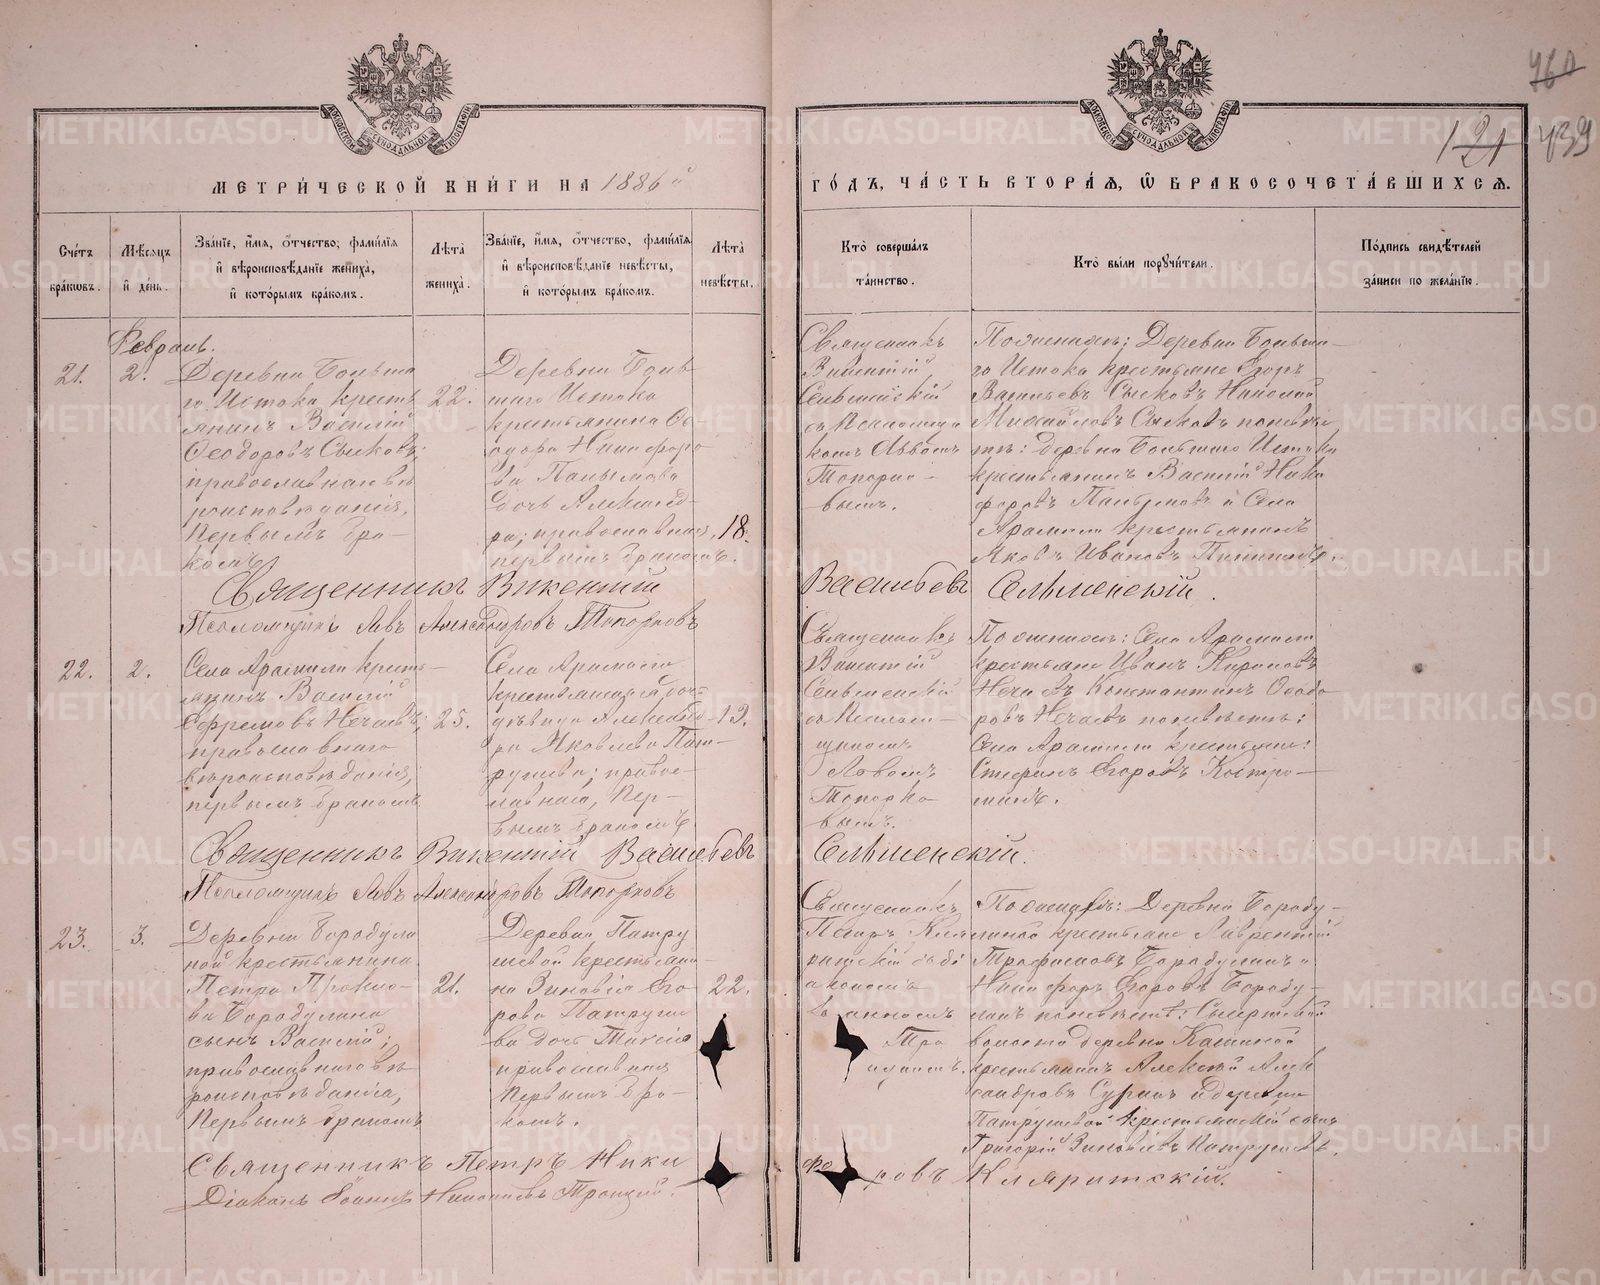 760
121 439
МЕТРИ́ЧЕСКОЙ КНИ́ГИ НА 1886й
ГО́ДЪ, ЧА́СТЬ ВТОРА́Я, Ѡ БРАКОСОЧЕТА́ВШИХСЯ.
Сче́тъ бра́кѡвъ.
Мѣ́сяцъ и́ де́нь.
Зва́нїе, и́мя, о́тчество, фами́лїя и́ вѣроисповѣ́данїе жениха̀, и́ кото́рымъ бра́комъ.
Лѣ́та жениха̀.
Зва́нїе, и́мя, о́тчество, фами́лїя и́ вѣроисповѣ́данїе невѣ́сты, и́ кото́рымъ бра́комъ.
Лѣ́та невѣ́сты.
Кто̀ соверша́лъ та́инство.
Кто̀ бы́ли поручи́тели.
По́дпись свидѣ́телей за́писи по жела́нїю.
Февраль.
21.
2.
Деревни Больша
го Истока кресть
янинъ Василій
Ѳеодоровъ Сысковъ;
православнаго вѣ
роисповѣданія,
первымъ бра-
комъ
22.
Деревни Боль
шаго Истока
крестьянина Ѳе-
одора Никифоро
ва
дочь Александ-
ра; православная,
первымъ бракомъ.
18.
Священникъ
Викентій
Сельменскій
съ Псаломщи
комъ Львомъ
Топорко-
вымъ.
По женихѣ: Деревни Больша-
го Истока крестьяне Егоръ
Васильевъ Сысковъ Николай
Михайловъ Сысковъ по невѣс
тѣ: деревни Большаго Истока
крестьянинъ Василій Ники
форовъ и Села
Арамили крестьянинъ
Яковъ Ивановъ
Священникъ Викентій Васильевъ Сельменскій.
Псаломщикъ Левъ Александровъ Топорковъ
22.
2.
Села Арамили кресть-
янинъ Василій
Ефремовъ Нечаевъ;
православнаго
вѣроисповѣданія,
первымъ бракомъ
25.
Села Арамили
крестьянская дочь
дѣвица Александ-
ра Яковлева Пат-
рушева; правос-
лавнаго, пер-
вымъ бракомъ
19.
Священникъ
Викентій
Сельменскій
съ Псалом-
щикомъ
Львомъ
Топорко-
вымъ.
По женихѣ: Села Арамили
крестьяне Иванъ
Нечаевъ Константинъ Ѳеодо
ровъ Нечаевъ по невѣстѣ:
Села Арамили крестьяне:
Стефанъ Егоровъ Костро-
минъ.
Священникъ Викентій Васильевъ Сельменскій.
Псаломщикъ Левъ Александровъ Топорковъ
23.
3.
Деревни Бородули
ной крестьянина
Петра Прокло-
ва Бородулина
сынъ Василій;
православнаго вѣ
роисповѣданія,
первымъ бракомъ
21.
Деревни Патру
шевой крестьяни-
на Зиновія Его
рова Патруше
ва дочь Таисія
православная
первымъ бра-
комъ.
22.
Священникъ
Петръ Кля
ритскій съ ді
акономъ
Іоанномъ
Тро
ицкимъ.
По женихѣ: Деревни Бороду-
линой крестьяне Лаврентій
Трофимовъ Бородулинъ и
Никифоръ Егоровъ Бороду-
линъ по невѣстѣ: Сысертской
волости деревни Кашиной
крестьянинъ Алексѣй Алек
сандровъ Суринъ и деревни
Патрушевой крестьянскій сынъ
Григорій Зиновіевъ Патрушевъ.
Священникъ Петръ Ники
форовъ Кляритскій.
Діаконъ Іоаннъ Троицкій.